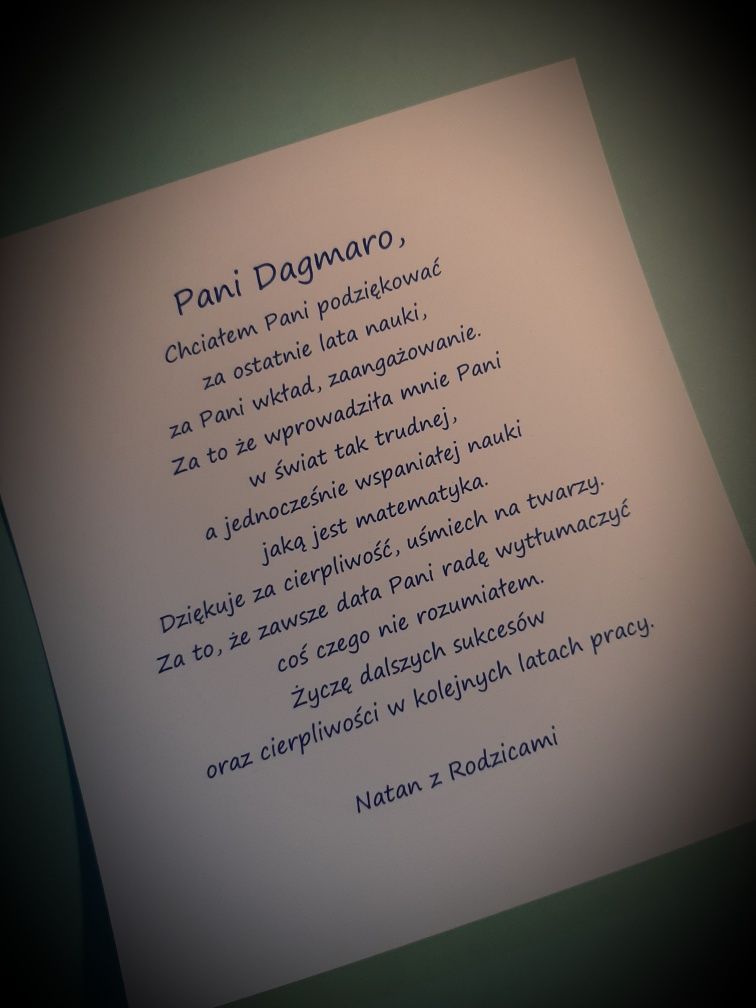 Pani Dagmaro,
Chciałem Pani podziękować
za ostatnie lata nauki,
za Pani wkład, zaangażowanie.
Za to że wprowadziła mnie Pani
w świat tak trudnej,
a jednocześnie wspaniałej nauki
jaką jest matematyka.
Dziękuje za cierpliwość, uśmiech na twarzy.
Za to, że zawsze dała Pani radę wytłumaczyć
coś czego nie rozumiałem.
Życzę dalszych sukcesów
oraz cierpliwości w kolejnych latach pracy.
Natan z Rodzicami